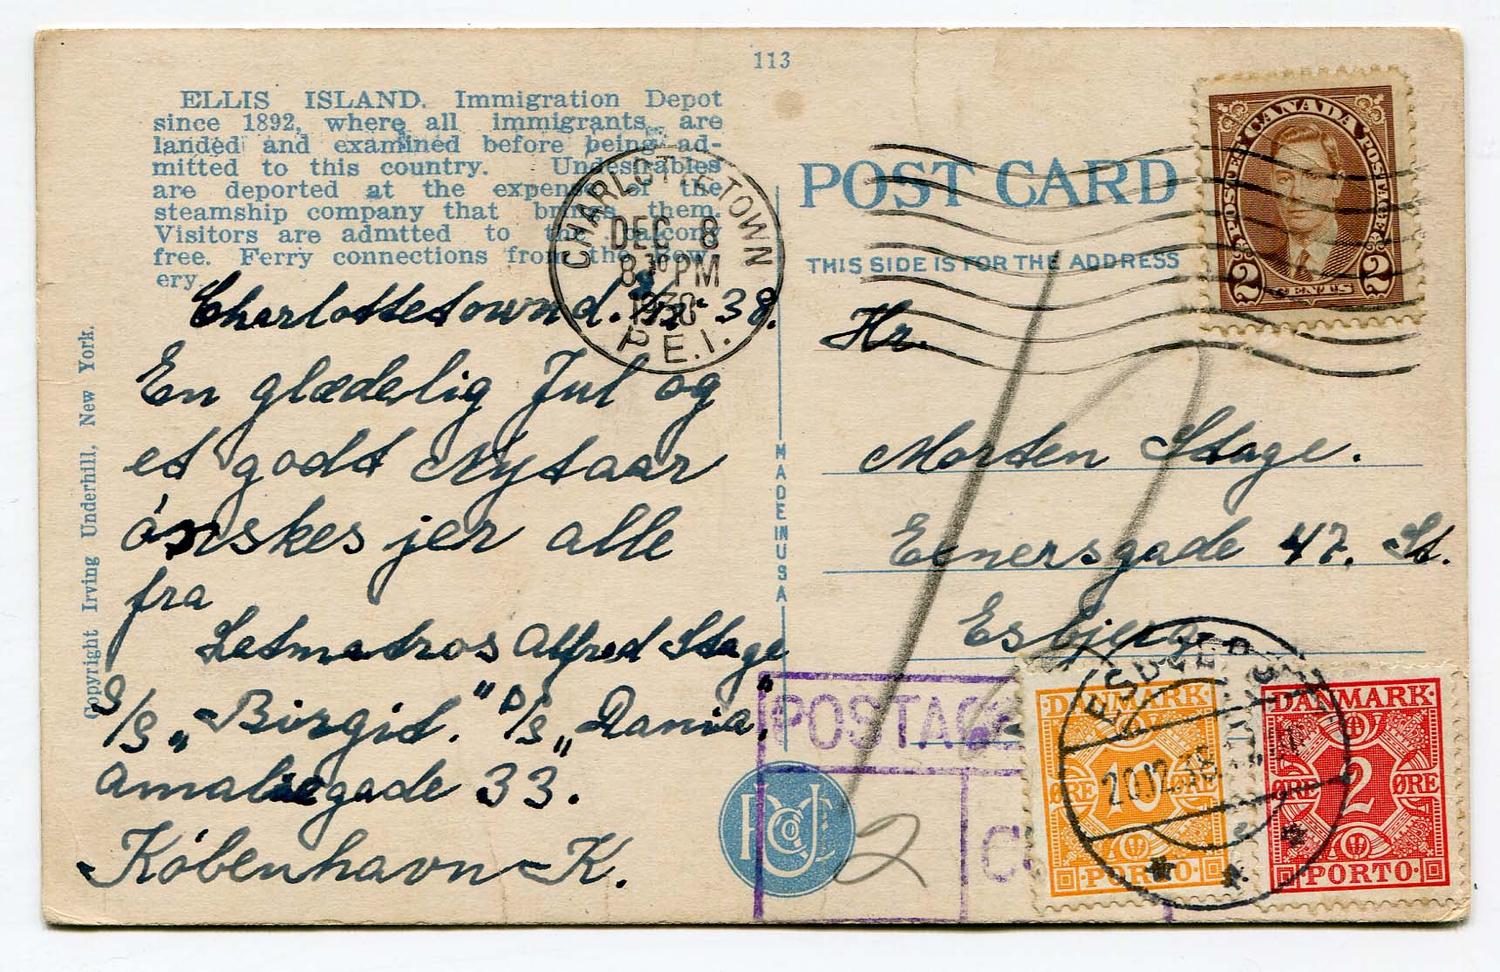 113
ELLIS ISLAND. Immigration Depot
since 1892, where all immigrants are
landed and examined before being ad-
mitted to this country. Undesirables
are deported at the expense of the
steamship company that brings them.
Visitors are admtted to the balcony
free. Ferry connections from the
ery.
Copyright Irving Underhill, New York.
CHARLOTTETOWN
DEC 8
8 30 PM
1938
P.E.I.
Charlottetownd. 38.
En glædelig Jul og
et godt Nytaar
ønskes jer alle
fra
Letmatros Alfred Stage
S/S „Birgit." D/S „Dania"
Amaliegade 33.
København-K.
MADE IN USA
POST CARD
THIS SIDE IS FOR THE ADDRESS
POSTES CANADA POSTAGE
2 CENTS 2
Hr.
Morten Stage.
Eenersgade 47. St.
Esbjerg
POSTAGE
2 C
ESBJERG
20.12.38
DANMARK
10
ØRE ØRE
PORTO
DANMARK
2
ØRE ØRE
PORTO
12